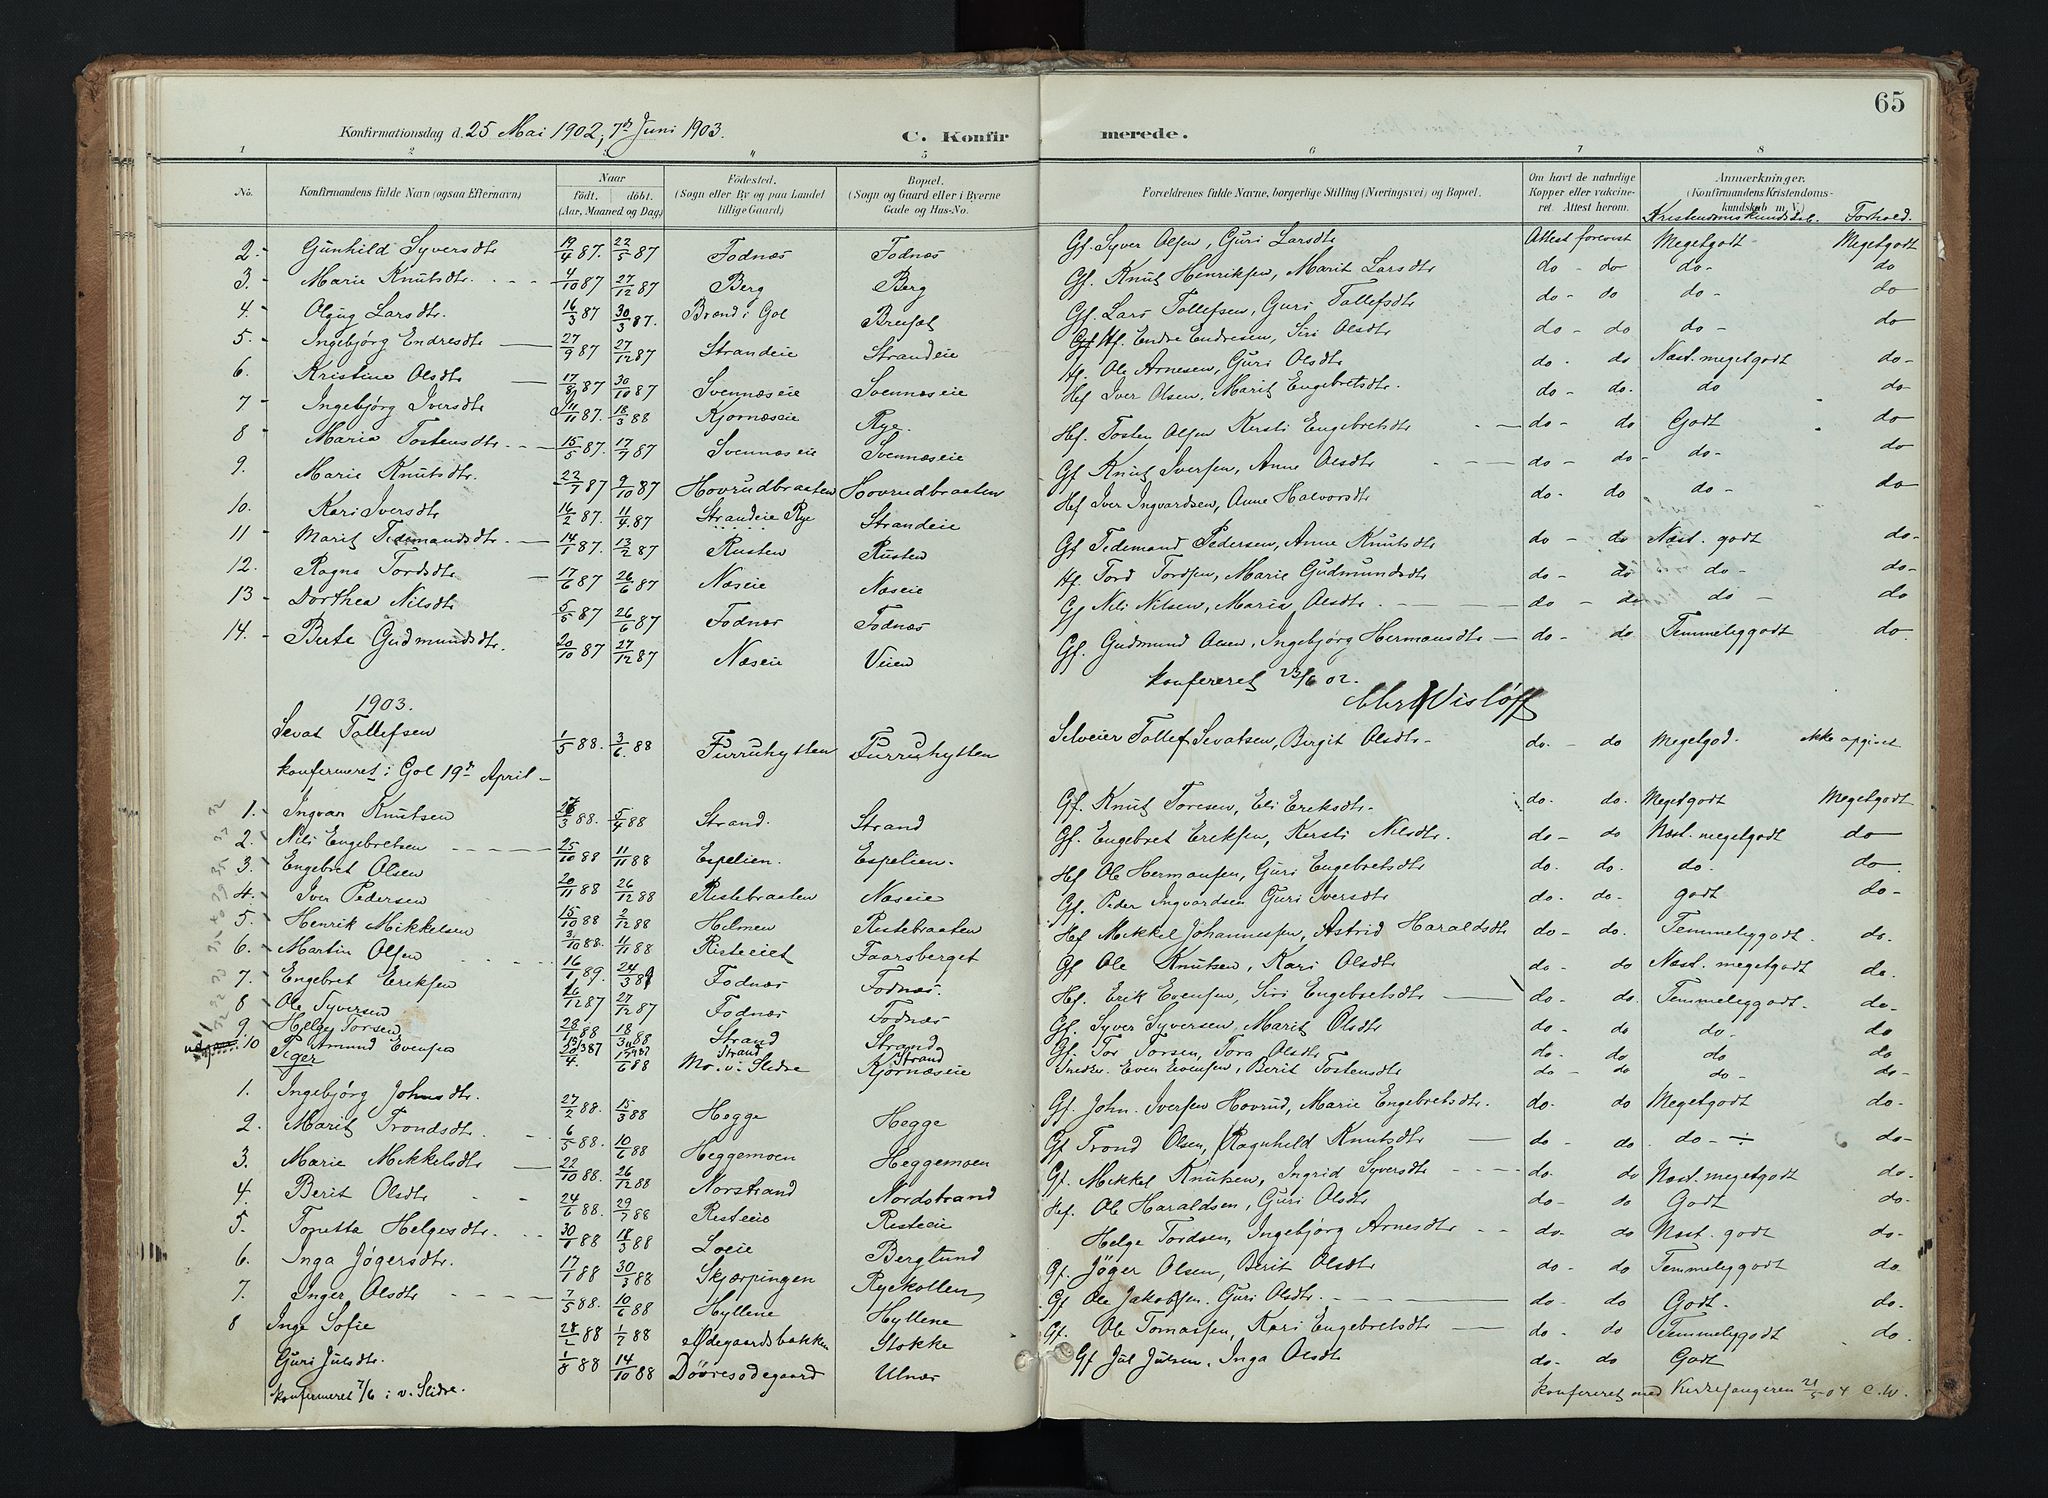 65
Konfirmationsdag d. 25 Mai 1902, 7de Juni 1903. C. Konfirmerede.
1 2 3 4 5 6 7 8
No. Konfirmandens fulde Navn (ogsaa Efternavn) Naar födt. döbt. (Aar, Maaned og Dag.) Födested. (Sogn eller By og paa Landet tillige Gaard) Bopæl. (Sogn og Gaard eller i Byerne Gade og Hus-No. Forældrenes fulde Navne, borgerlige Stilling (Næringsvei) og Bopæl. Om havt de naturlige Kopper eller vakcineret. Attest herom. Anmærkninger. (Konfirmandens Kristendomskundskab m. V.)
Kristendomskundskab. Forhold.
2. Gunhild Syversdtr 19/4 87. 22/5 87 Fodnæs Fodnæs Gf. Syver Olsen, Guri Larsdtr Attest forevist Megetgodt Megetgodt
3. Marie Knutsdtr. 4/10 87 27/12 87 Berg Berg Gf. Knut Henriksen, Marit Larsdtr do - do do - do
4. Olaug Larsdtr. 16/3 87 30/3 87. Brend i Gol Breiset Gf. Lars Tollefsen, Guri Tollefsdtr do - do do - do
5. Ingebjørg Endresdtr 27/9 87 27/12 87 Strandeie Strandeie Hf. Endre Endresen, Siri Olsdtr do - do do - do
6. Kristine Olsdtr 17/8 87 30/10 87 Svennæseie Svennæseie Hf. Ole Arnesen, Guri Olsdtr do - do Næst. megetgodt do -
7 - Ingebjørg Iversdtr 11/11 87. 18/3 88 Kjornæseie Rye. Hf Iver Olsen, Marit Engebretsdtr. do - do. do do -
8 Maria Tostensdtr. 15/5 87 17/7 87 Svennæseie Svennæseie Hf. Tosten Olsen Kersti Engebretsdtr do - do Godt do
9. Marie Knutsdtr. 22/7 87 9/10 87 Hovrudbraaten Hovrudbraaten Gf Knut Iversen, Anne Olsdtr do - do - do - do
10. Kari Iversdtr 16/2 87. 11/4 87 Strandeie Rye Strandeie Hf Iver Ingvardsen, Anne Halvorsdtr do - do do - do
11 - Marit Tidemandsdtr. 14/1 87. 13/2 87 Rusten Rusten Gf Tidemand Pedersen, Anne Knutsdtr do - do Næst. godt do -
12. Ragna Tordsdtr 17/6 87 26/6 87 Næseie Næseie Hf. Tord Tordsen, Marie Gudmundsdtr do - do do - do -
13 - Dorthea Nilsdtr 5/5 87 26/6 87 Fodnæs Fodnæs Gf Nils Nilsen, Maria Olsdtr. do - do do - do
14. - Berte Gudmundsdtr. 20/10 87 27/12 87 Næseie Veien Gf. Gudmund Olsen, Ingebjørg Hermansdtr do - do Temmeliggodt do.
konfereret 23/6 02.
Wisløff
1903.
Sevat Tollefsen 1/5 88. 3/6 88 Furruhytten Furruhytten Selveier Tollef Sevatsen, Birgit Olsdtr - do - do Megetgod. ikke opgivet
konfirmeret i Gol 19de April -
1. Ingvar Knutsen 3 88. 5/4 88 Strand. Strand Gf. Knut Toresen, Eli Eriksdtr. do - do. Megetgodt Megetgodt
2. Nils Engebretsen 25/10 88 11/11 88 Espelien. Espelien. Gf. Engebret Eriksen, Kersti Nilsdtr. do - do Næst. megetgodt do
3. Engebret Olsen 20/11 88 26/12 88 Ristebraaten Næseie Hf Ole Hermansen, Guri Engebretsdtr do. do. do. do.
4. Iver Pedersen 15/10 88 2/12 88 Helmen Ristebraaten Gf. Peder Ingvardsen Guri Iversdtr do - do - godt do -
5. Henrik Mikkelsen 3/10 88. 4/11 88 Risteeiet Faarsberget Hf Mikkel Johannessen, Astrid Haraldsdtr do - do. Temmeliggodt. do.
6. Martin Olsen 16/1 89. 24/3 89 Fodnæs Fodnæs. Gf Ole Knutsen, Kari Olsdtr do - do Næst. megetgodt do.
7. Engebret Eriksen 16/12 87 27/12 87 Fodnæs Fodnæs Hf. Erik Evensen, Siri Engebretsdtr do - do. Temmeliggodt. do
8 Ole Syversen 28/1 88 18/3 88 Strand Strand Gf. Syver Syversen, Marit Olsdtr do - do do. do
9. Helge Torsen Strand Strand Gf. Tor Torsen, Tora Olsdtr do - do do do
10 Amund Evensen 4. 17/6 88 v. Slidre Kjørnæseie Even Evensen, Berit Tostensdtr do - do do - do -
Piger
1. Ingebjørg Johnsdtr. 27/2 88. 15/3 88 Hegge Hegge Gf. John. Iversen Hovrud, Marie Engebretsdtr. do - do Megetgodt do -
2. Marit Trondsdtr. 6/5 88. 10/6 88 Heggemoen Heggemoen Gf Trond Olsen, Ragnhild Knutsdtr do - do. do - ÷ do -
3. Marie Mikkelsdtr 22/10 88. 26/12 88 Norstrand Nordstrand Gf. Mikkel Knutsen, Ingrid Syversdtr do. do Næst. megetgodt do.
4. Berit Olsdtr 24/6 88. 29/7 88 Risteeie Risteeie Hf. Ole Haraldsen, Guri Olsdtr do - do Godt do -
5. Tonetta Helgesdtr. 30/1 88 18/3 88 Loeie Berglund Helge Tordsen, Ingebjørg Arnesdtr do - do Næst. godt do
6. Inga Jøgersdtr. 17/1 88 30/3 88 Skjærpingen Ryekollen Gf. Jøger Olsen, Berit Olsdtr do - do Temmeliggodt do.
7. Inger Olsdtr 7/5 88. 10/6 88 Hyllene Hyllene Gf Ole Jakobsen. Guri Olsdtr. do - do Godt. do -
8 Inge Sofie 28/2 88 1/7 88 Ødegaardsbakken Stokke Gf. Ole Tomassen, Kari Engebretsdtr do - do Temmeliggodt do
Guri Julsdtr. 1/8 88 14/10 88 Døvresødegaard Ulnæs Gf Jul Julsen, Inga Olsdtr do - do Godt
konfirmeret 7/6 i v. Slidre. konfereret med Kirkesangeren 21/5 04 C.W.